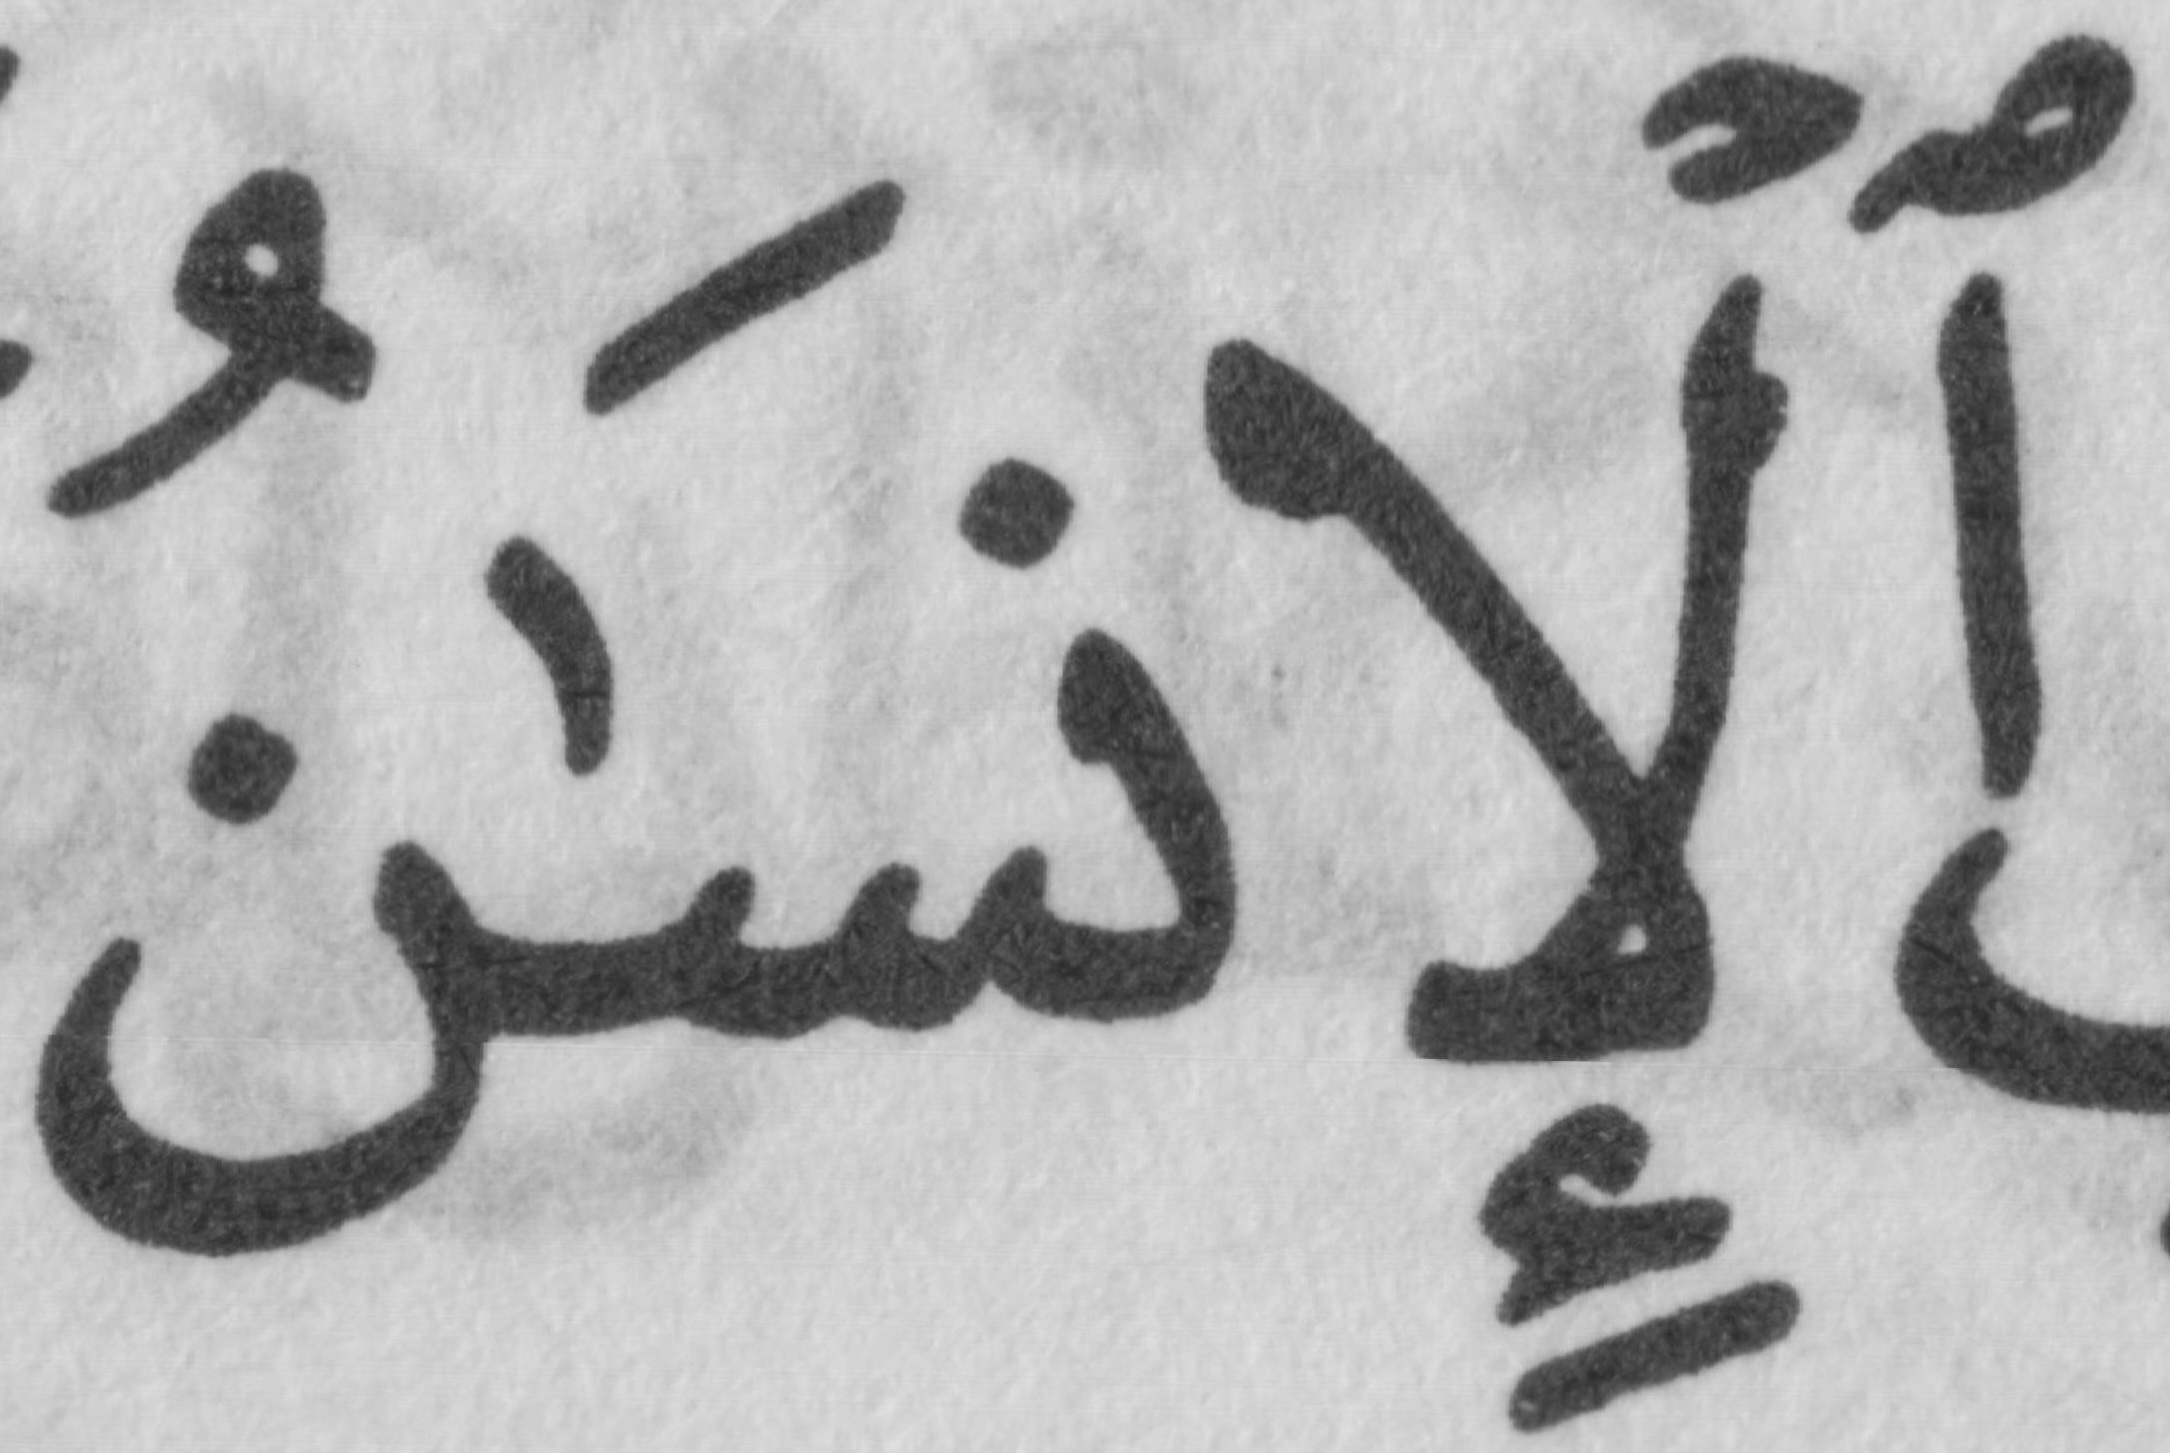 ٱلْإِنسَـٰنُ